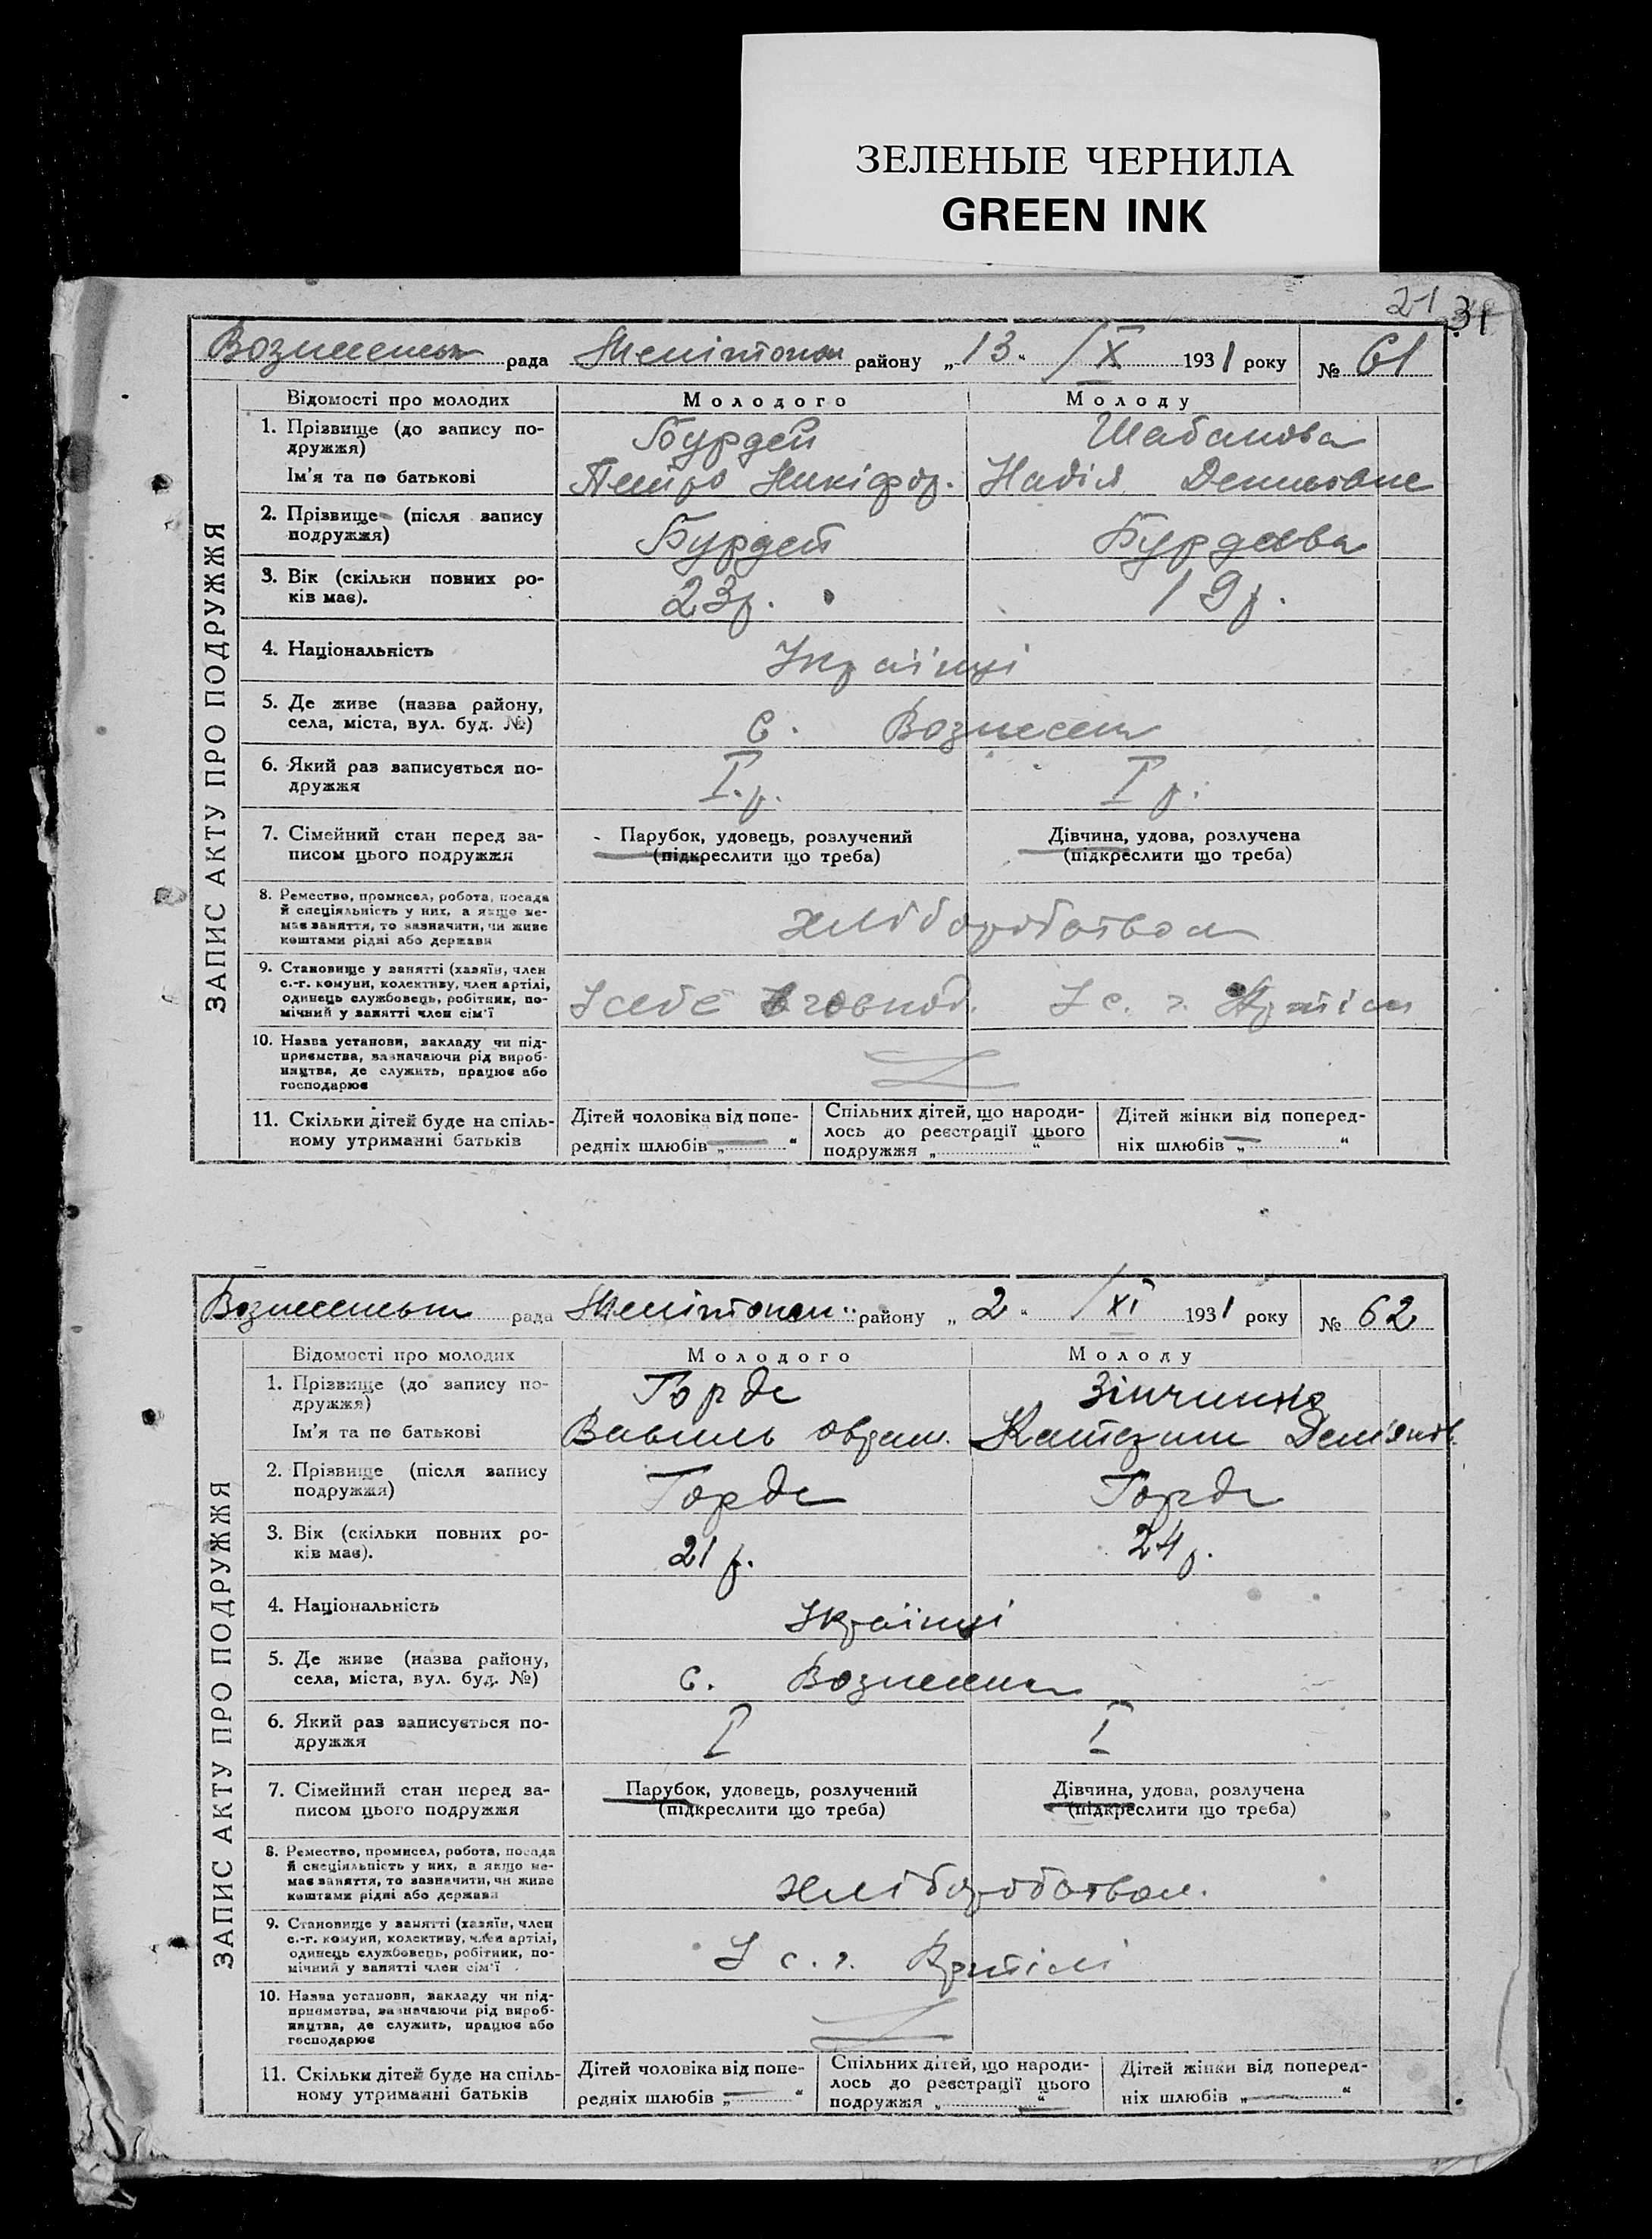 ЗЕЛЕНЫЕ ЧЕРНИЛА
GREEN INK
21 31
рада району „13“ /IX 1931 року № 61
ЗАПИС АКТУ ПРО ПОДРУЖЖЯ
Відомості про молодих Молодого Молоду
1. Прізвище (до запису по-
дружжя) Бурдей Шабанова
Ім'я та по батькові Петро Никіфор. Надія
2. Прізвище (після запису
подружжя) Бурдей Бурдеева
3. Вік (скільки повних ро-
ків має). 23р. 19р.
4. Національність Українці
5. Де живе (назва району,
села, міста, вул. буд. №) с. Вознесен
6. Який раз записується по-
дружжя I.р. I р.
7. Сімейний стан перед за-
писом цього подружжя
Парубок, удовець, розлучений
(підкреслити що треба)
Дівчина, удова, розлучена
(підкреслити що треба)
8. Ремество, промисел, робота, посада
й спеціяльність у них, а якщо не-
має заняття, то зазначити, чи живе
коштами рідні або держави
хліборобством
9. Становище у занятті (хазяїн, член
с.-г. комуни, колективу, член артілі,
одинець службовець, робітник, по-
мічний у занятті член сім'ї
У с. г. Артіли
10. Назва установи, закладу чи під-
приємства, зазначаючи рід вироб-
ництва, де служить, працює або
господарює
11. Скільки дітей буде на спіль-
ному утриманні батьків
Дітей чоловіка від попе-
редніх шлюбів „ “
Спільних дітей, що народи-
лось до реєстрації цього
подружжя „ “
Дітей жінки від поперед-
ніх шлюбів „ “
рада району „2“ /XI 1931 року № 62
ЗАПИС АКТУ ПРО ПОДРУЖЖЯ
Відомості про молодих Молодого Молоду
1. Прізвище (до запису по-
дружжя) Горде Зінченко
Ім'я та по батькові Василь Аврам. Катерина Дем'янів.
2. Прізвище (після запису
подружжя) Горде Горде
3. Вік (скільки повних ро-
ків має). 21 р. 24 р.
4. Національність Українці
5. Де живе (назва району,
села, міста, вул. буд. №) с. Вознесен
6. Який раз записується по-
дружжя I I
7. Сімейний стан перед за-
писом цього подружжя
Парубок, удовець, розлучений
(підкреслити що треба)
Дівчина, удова, розлучена
(підкреслити що треба)
8. Ремество, промисел, робота, посада
й спеціяльність у них, а якщо не-
має заняття, то зазначити, чи живе
коштами рідні або держави
хліборобством.
9. Становище у занятті (хазяїн, член
с.-г. комуни, колективу, член артілі,
одинець службовець, робітник, по-
мічний у занятті член сім'ї
У с. г. Артілі
10. Назва установи, закладу чи під-
приємства, зазначаючи рід вироб-
ництва, де служить, працює або
господарює
11. Скільки дітей буде на спіль-
ному утриманні батьків
Дітей чоловіка від попе-
редніх шлюбів „ “
Спільних дітей, що народи-
лось до реєстрації цього
подружжя „ “
Дітей жінки від поперед-
ніх шлюбів „ “